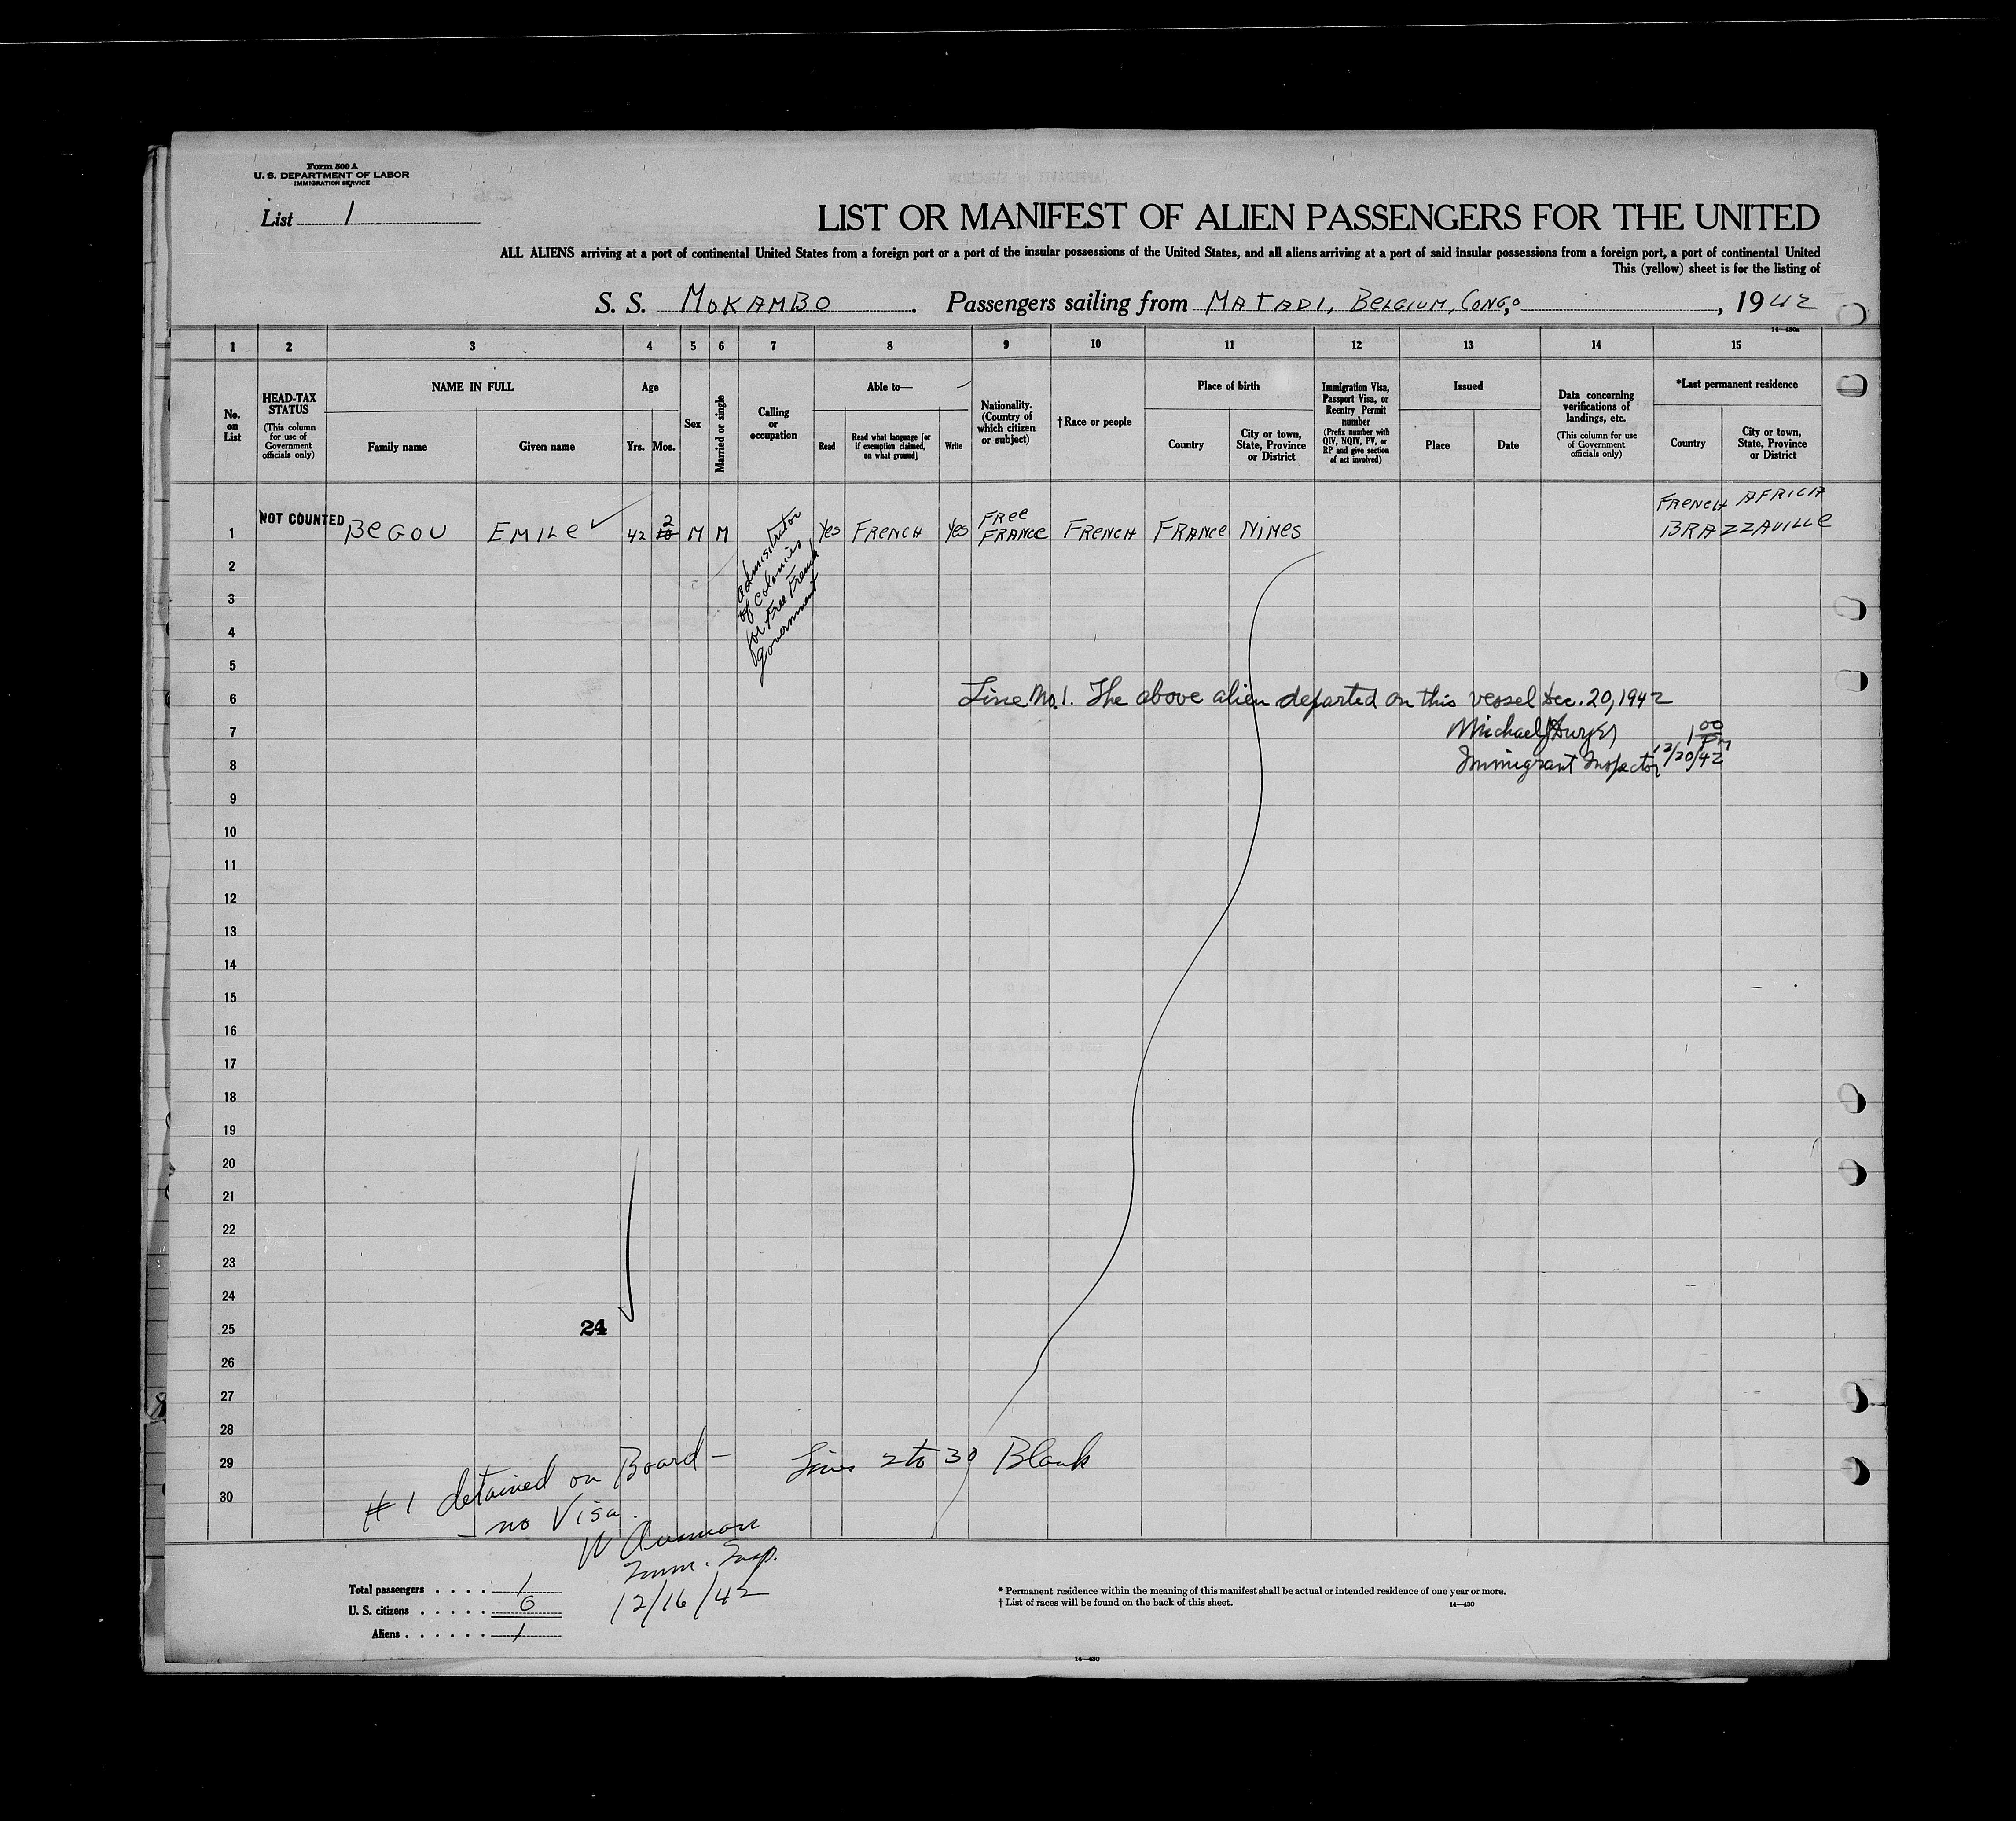 Form 500 A
U. S. DEPARTMENT OF LABOR
IMMIGRATION SERVICE
List 1
LIST OR MANIFEST OF ALIEN PASSENGERS FOR THE UNITED
ALL ALIENS arriving at a port of continental United States from a foreign port or a port of the insular possessions of the United States, and all aliens arriving at a port of said insular possessions from a foreign port, a port of continental United
This (yellow) sheet is for the listing of
S. S. MOKAMBO . Passengers sailing from MATADI, BELGIUM, CONGO, , 1942
14—430a
1 2 3 4 5 6 7 8 9 10 11 12 13 14 15
No. on List
HEAD-TAX STATUS
(This column for use of Government officials only)
NAME IN FULL
Family name
Given name
Age
Yrs. Mos.
Sex
Married or single
Calling or occupation
Able to—
Read
Read what language [or if exemption claimed, on what ground]
Write
Nationality. (Country of which citizen or subject)
†Race or people
Place of birth
Country
City or town, State, Province or District
Immigration Visa, Passport Visa, or Reentry Permit number
(Prefix number with QIV, NQIV, PV, or RP and give section of act involved)
Issued
Place
Date
Data concerning verifications of landings, etc.
(This column for use of Government officials only)
*Last permanent residence
Country
City or town, State, Province or District
1 NOT COUNTED BEGOU EMILE 42 2 10 M M administrator of colonies for Free French Government Yes FRENCH Yes FREE FRANCE FRENCH FRANCE NIMES FRENCH AFRICA BRAZZAVILLE
2
3
4
5
6 Line No. 1. The above alien departed on this vessel Dec. 20, 1942
7 Michael J 1 00 PM
8 Immigrant Inspector 12/20/42
9
10
11
12
13
14
15
16
17
18
19
20
21
22
23
24
25 24
26
27
28
29
30
#1 detained on Board – Lines 2 to 30 Blank
– no Visa.
W
Imm. Insp.
12/16/42
Total passengers . . . . 1
U. S. citizens . . . . . 0
Aliens . . . . . . 1
* Permanent residence within the meaning of this manifest shall be actual or intended residence of one year or more.
† List of races will be found on the back of this sheet.
14—430
14—430